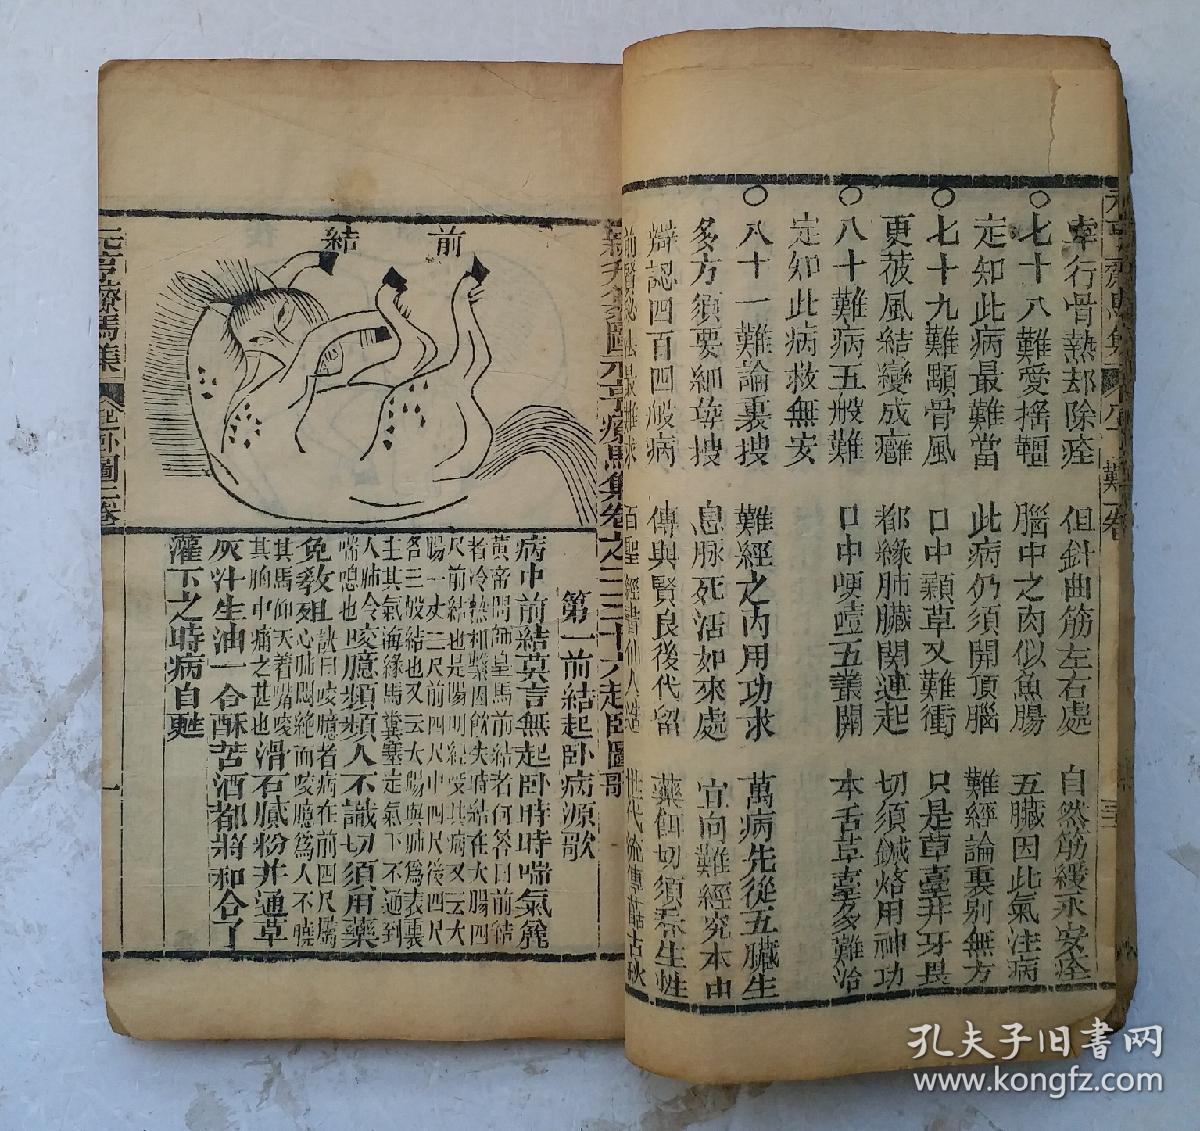 牽行骨熱却除痊 但針曲筋左右處 自然筋緩永安痊
○七十八難愛搖韁 腦中之肉似魚腸 五臟因此氣注病
定知此病最難當 此病仍須開頂腦 難經論裏別無方
○七十九難顋骨風 口中顙草又難衝 只是草臺并牙畏
更菝風結變成癰 都緣肺臟関連起 切須鍼烙用神功
○八十難病五般難 口中哽噎五叢開 本舌草臺多難治
定知此病救無安
○八十一難論裏搜 難經之內用功求 萬病先從五臟生
多方須要細尋搜 息脉死活如來處 宜向難經究本由
辯認四百四般病 傳與賢良後代留 藥餌切須看生性
新刊纂圖元亨療馬集卷之二三十六起臥圖歌
第一前結起卧病源歌
病中前結莫言無起卧時時喘氣麄
黃帝問師皇馬前結者何答曰前結
者冷熱和藥因飲失時結在大腸四
尺前結也是陽明經受其病又云大
腸一丈二尺前四尺中四尺後四尺
各三般結也又云大腸與肺為表裏
主其氣海緣馬糞塞走氣下不通到
人肺令
喘息也
㕙臆頻頻人不識切須用藥
免教殂
訣曰㕙臆者病在前四尺屬
心肺悶絕而㕙臆為人不曉
其馬仰天着嘴㕙
其胸中痛之甚也
滑石膩粉并通草
灰汁生油一合酥苦酒都將和合了
灌下之時病自甦
前
結
元亨療馬集
起卧圖二卷
一
孔夫子旧書网
www.kongfz.com